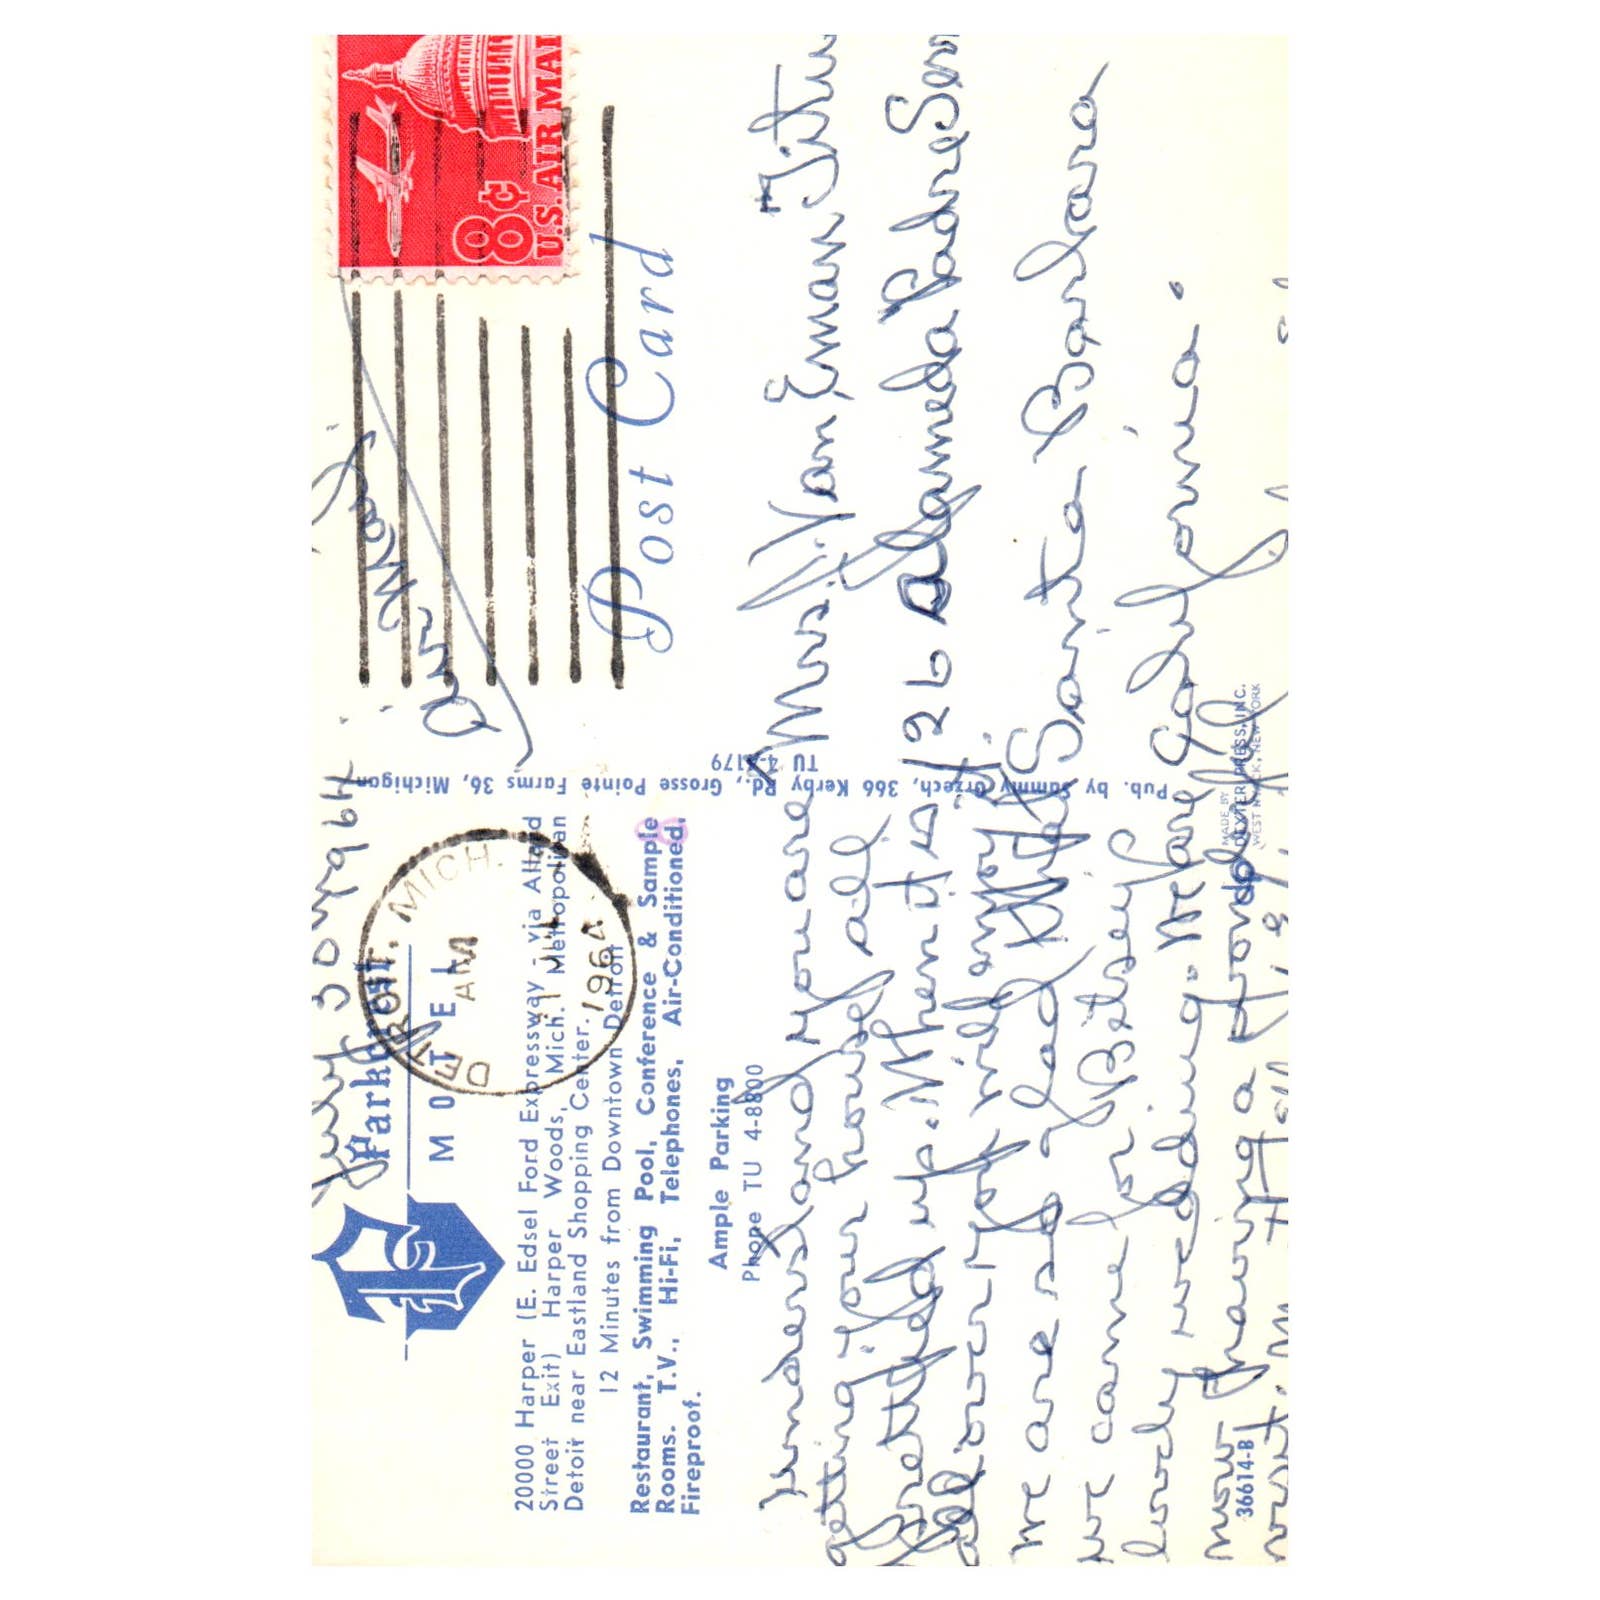 July 30, 1964
Parkcrest
MOTEL
20000 Harper (E. Edsel Ford Expressway - via Allard
Street Exit) Harper Woods, Mich. Metropolitan
Detoit near Eastland Shopping Center.
12 Minutes from Downtown Detroit
Restaurant, Swimming Pool, Conference & Sample
Rooms. T.V., Hi-Fi, Telephones, Air-Conditioned.
Fireproof.
Ample Parking
Phone TU 4-8800
DETROIT, MICH.
AM
31 JUL
1964
I understand you are
getting your house all
prettyfied up. When it is
all over you will enjoy it.
We are so glad
we came for Betsey's
lovely wedding. We are
now having a good
visit.
36614-B
Pub. by Sammy Orzech, 366 Kerby Rd., Grosse Pointe Farms 36, Michigan
TU 4-4179
MADE BY
dp DEXTER PRESS, INC.
WEST NYACK, NEW YORK
8¢
U.S. AIR MAIL
Air Mail
Post Card
Mrs. Van Eman Titus
126 Alameda Padre Serra
Santa Barbara
California.